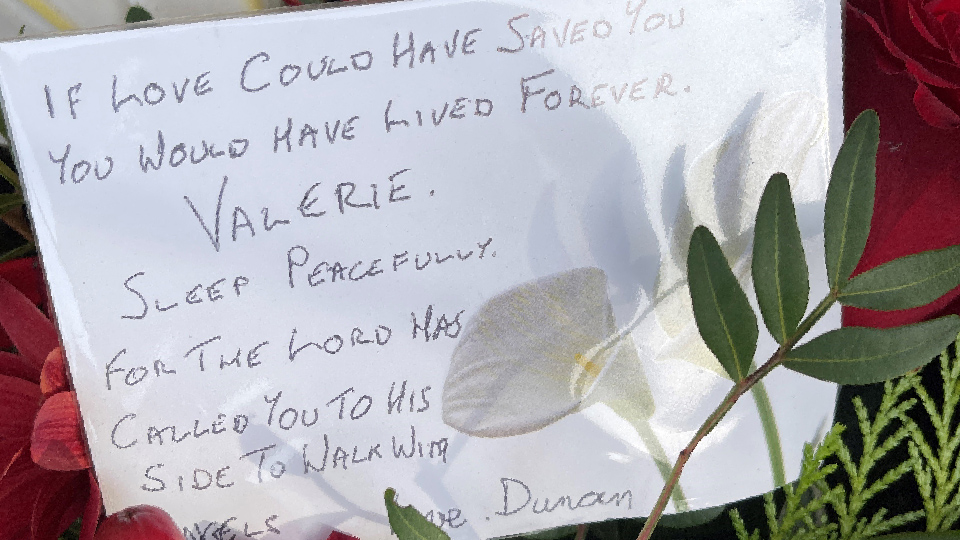 IF LOVE COULD HAVE SAVED YOU
YOU WOULD HAVE LIVED FOREVER.
VALERIE.
SLEEP PEACEFULLY.
FOR THE LORD HAS
CALLED YOU TO HIS
SIDE TO WALK WITH
Duncan